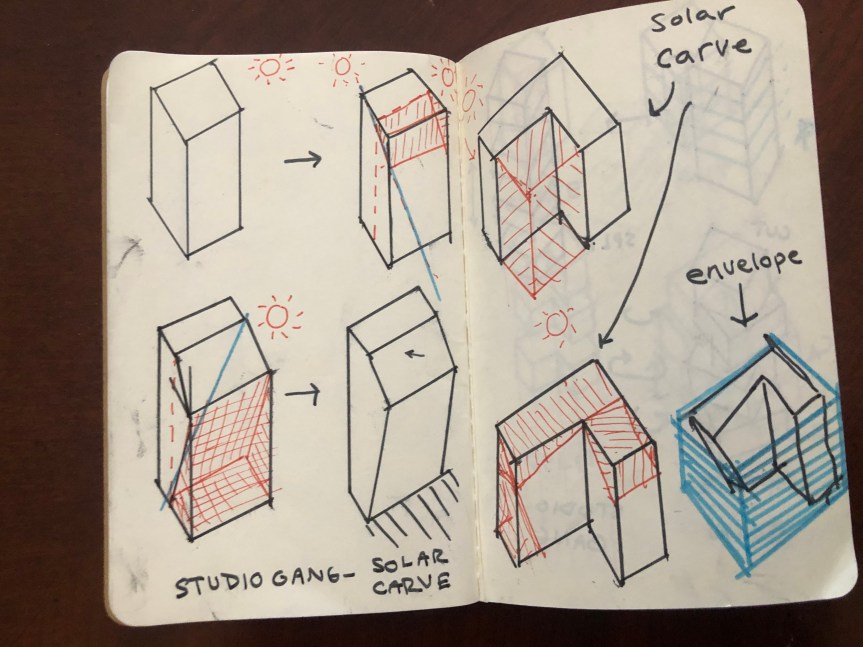 STUDIO GANG- SOLAR
CARVE
solar
carve
envelope